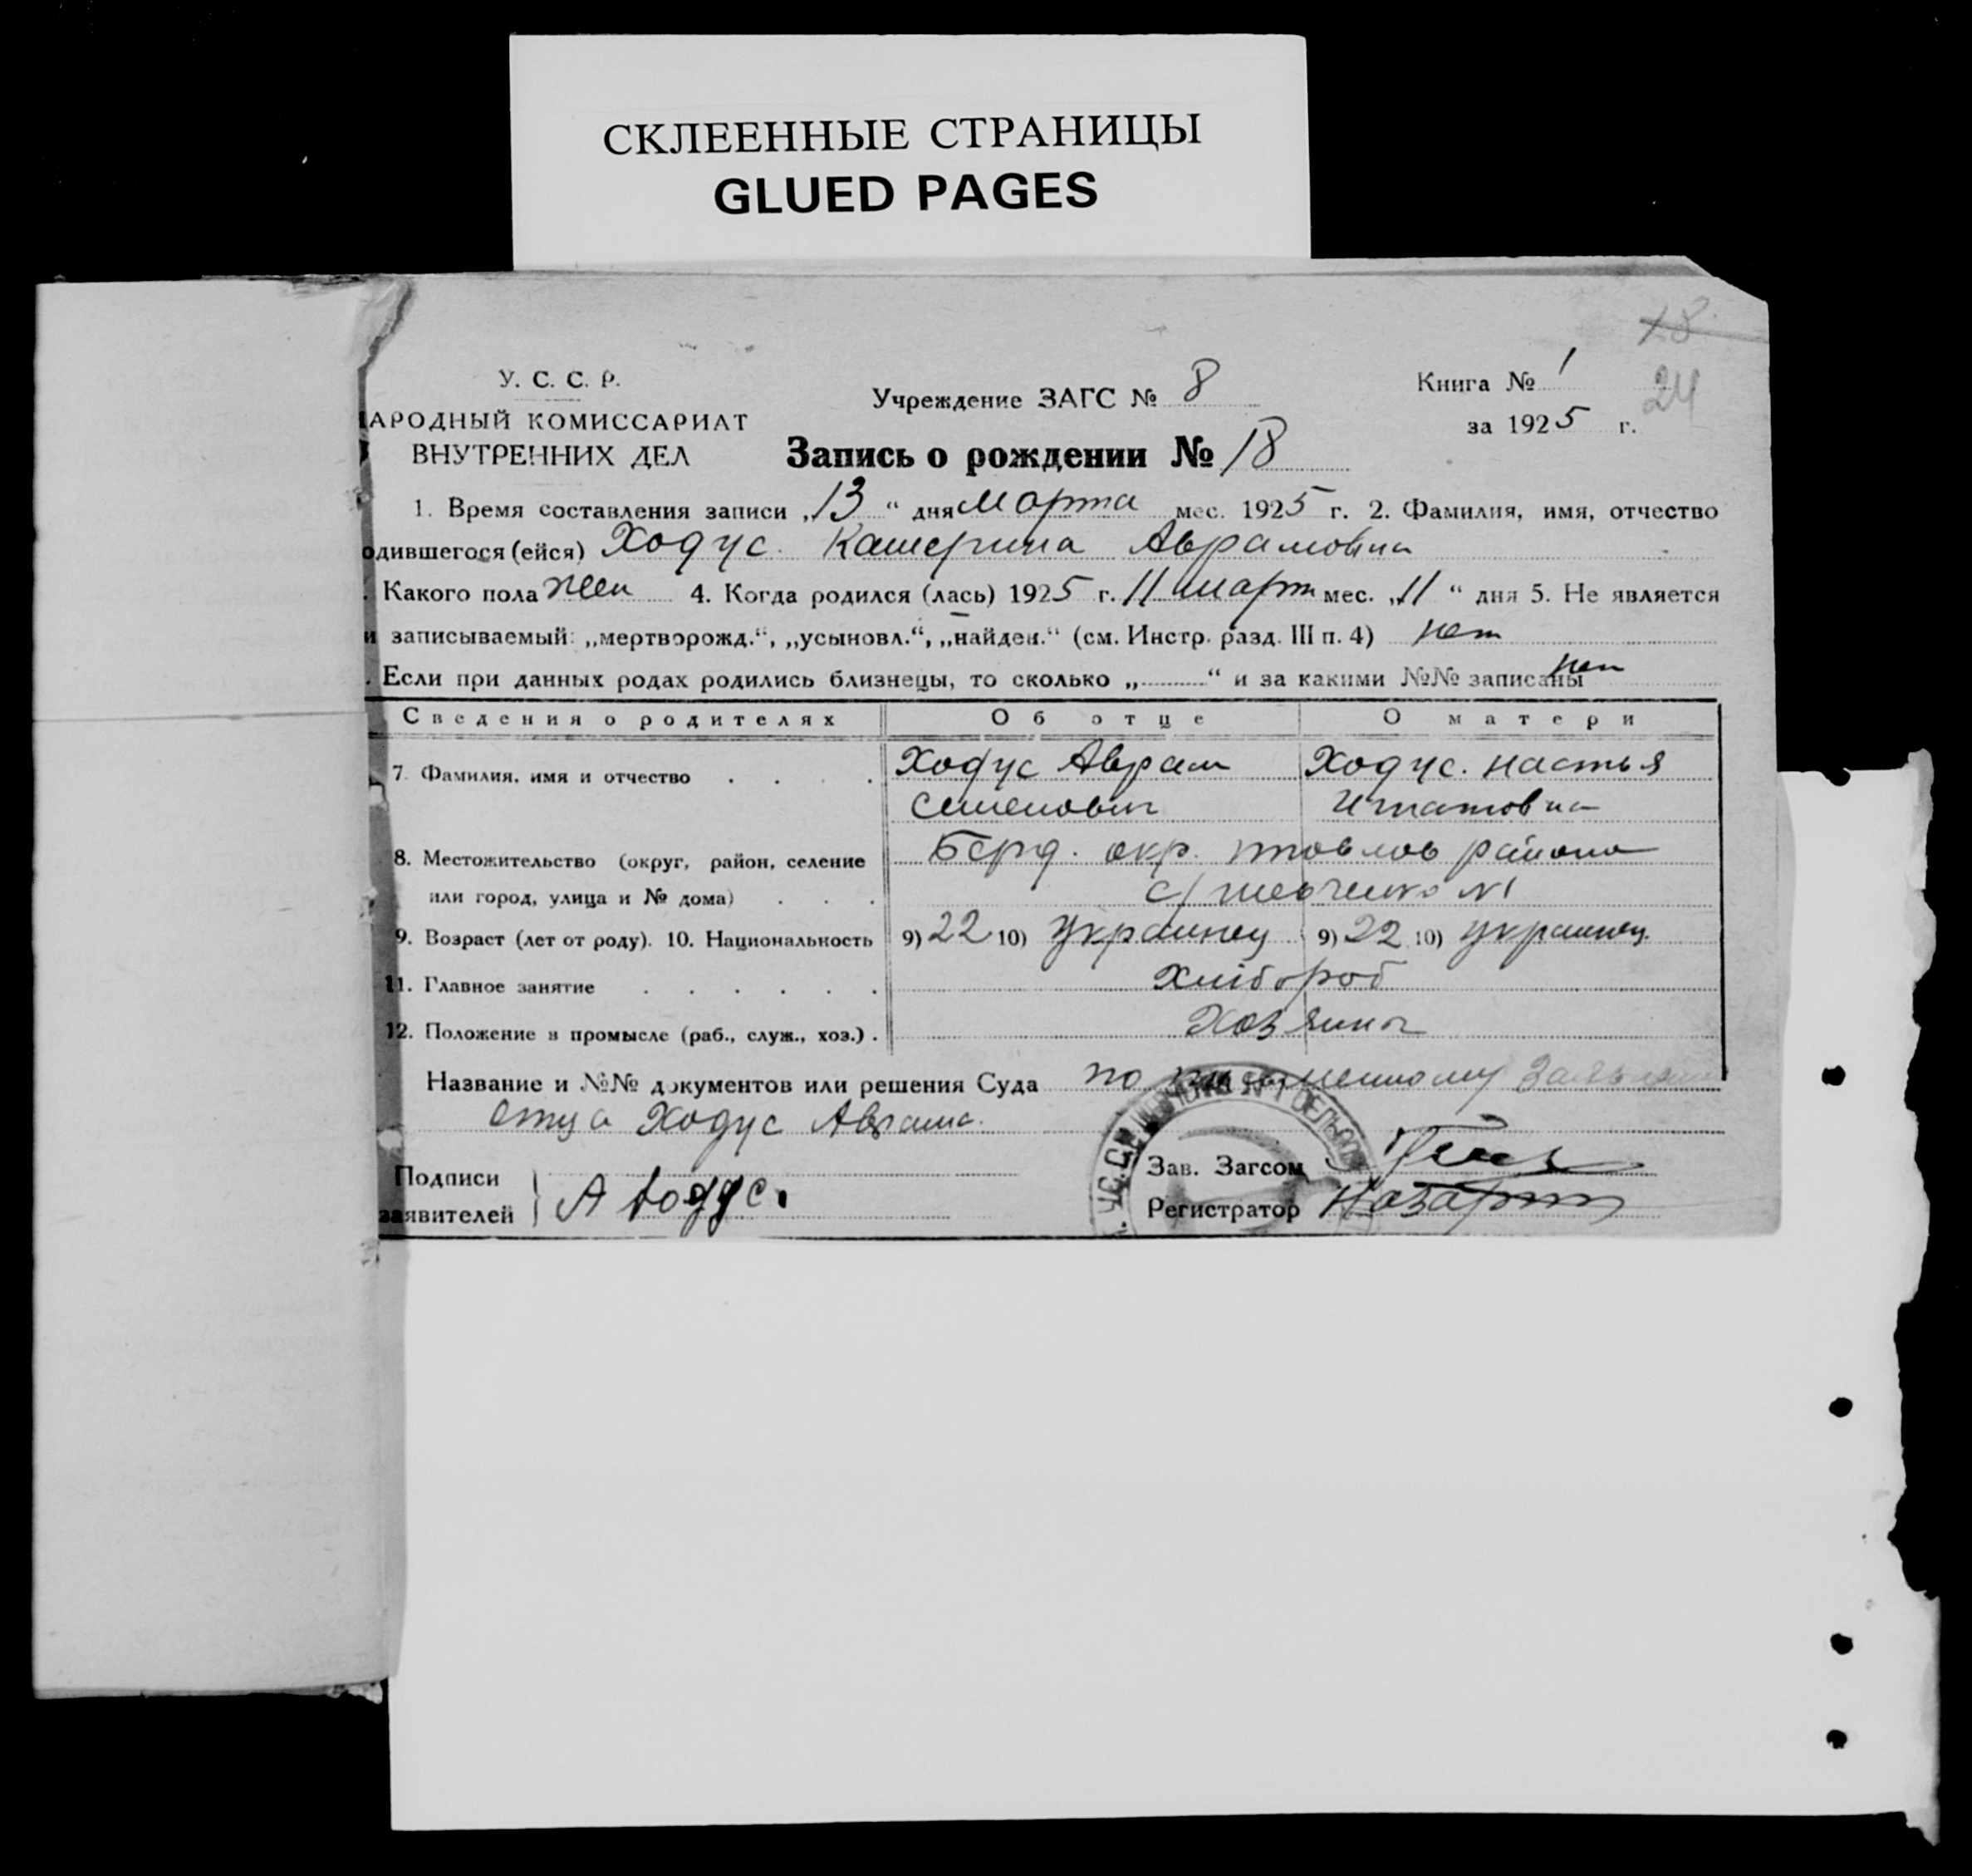 СКЛЕЕННЫЕ СТРАНИЦЫ
GLUED PAGES
18.
24
У. С. С. Р.
АРОДНЫЙ КОМИССАРИАТ
ВНУТРЕННИХ ДЕЛ
Учреждение ЗАГС № 8
Книга № 1
за 1925 г.
Запись о рождении № 18
1. Время составления записи „13 “ дня Марта мес. 1925 г. 2. Фамилия, имя, отчество
одившегося (ейся) Ходус. Катерина Аврамовна
. Какого пола жен 4. Когда родился (лась) 1925 г. 11 март мес. „11 “ дня 5. Не является
и записываемый: „мертворожд.“, „усыновл.“, „найден.“ (см. Инстр. разд. III п. 4) нет
. Если при данных родах родились близнецы, то сколько „ “ и за какими №№ записаны нет
Сведения о родителях Об отце О матери
7. Фамилия, имя и отчество Ходус Аврам Ходус. Настья
Семенович Игнатовна
8. Местожительство (округ, район, селение Берд. окр. района
или город, улица и № дома) с/ Шевченко №1
9. Возраст (лет от роду). 10. Национальность 9) 22 10) Украинец 9) 22 10) украинец.
11. Главное занятие Хлібороб
12. Положение в промысле (раб., служ., хоз.) . Хозяин
Название и №№ документов или решения Суда по письменному
отца Ходус Аврама.
Подписи
заявителей } А Ходус.
Зав. Загсом
Регистратор